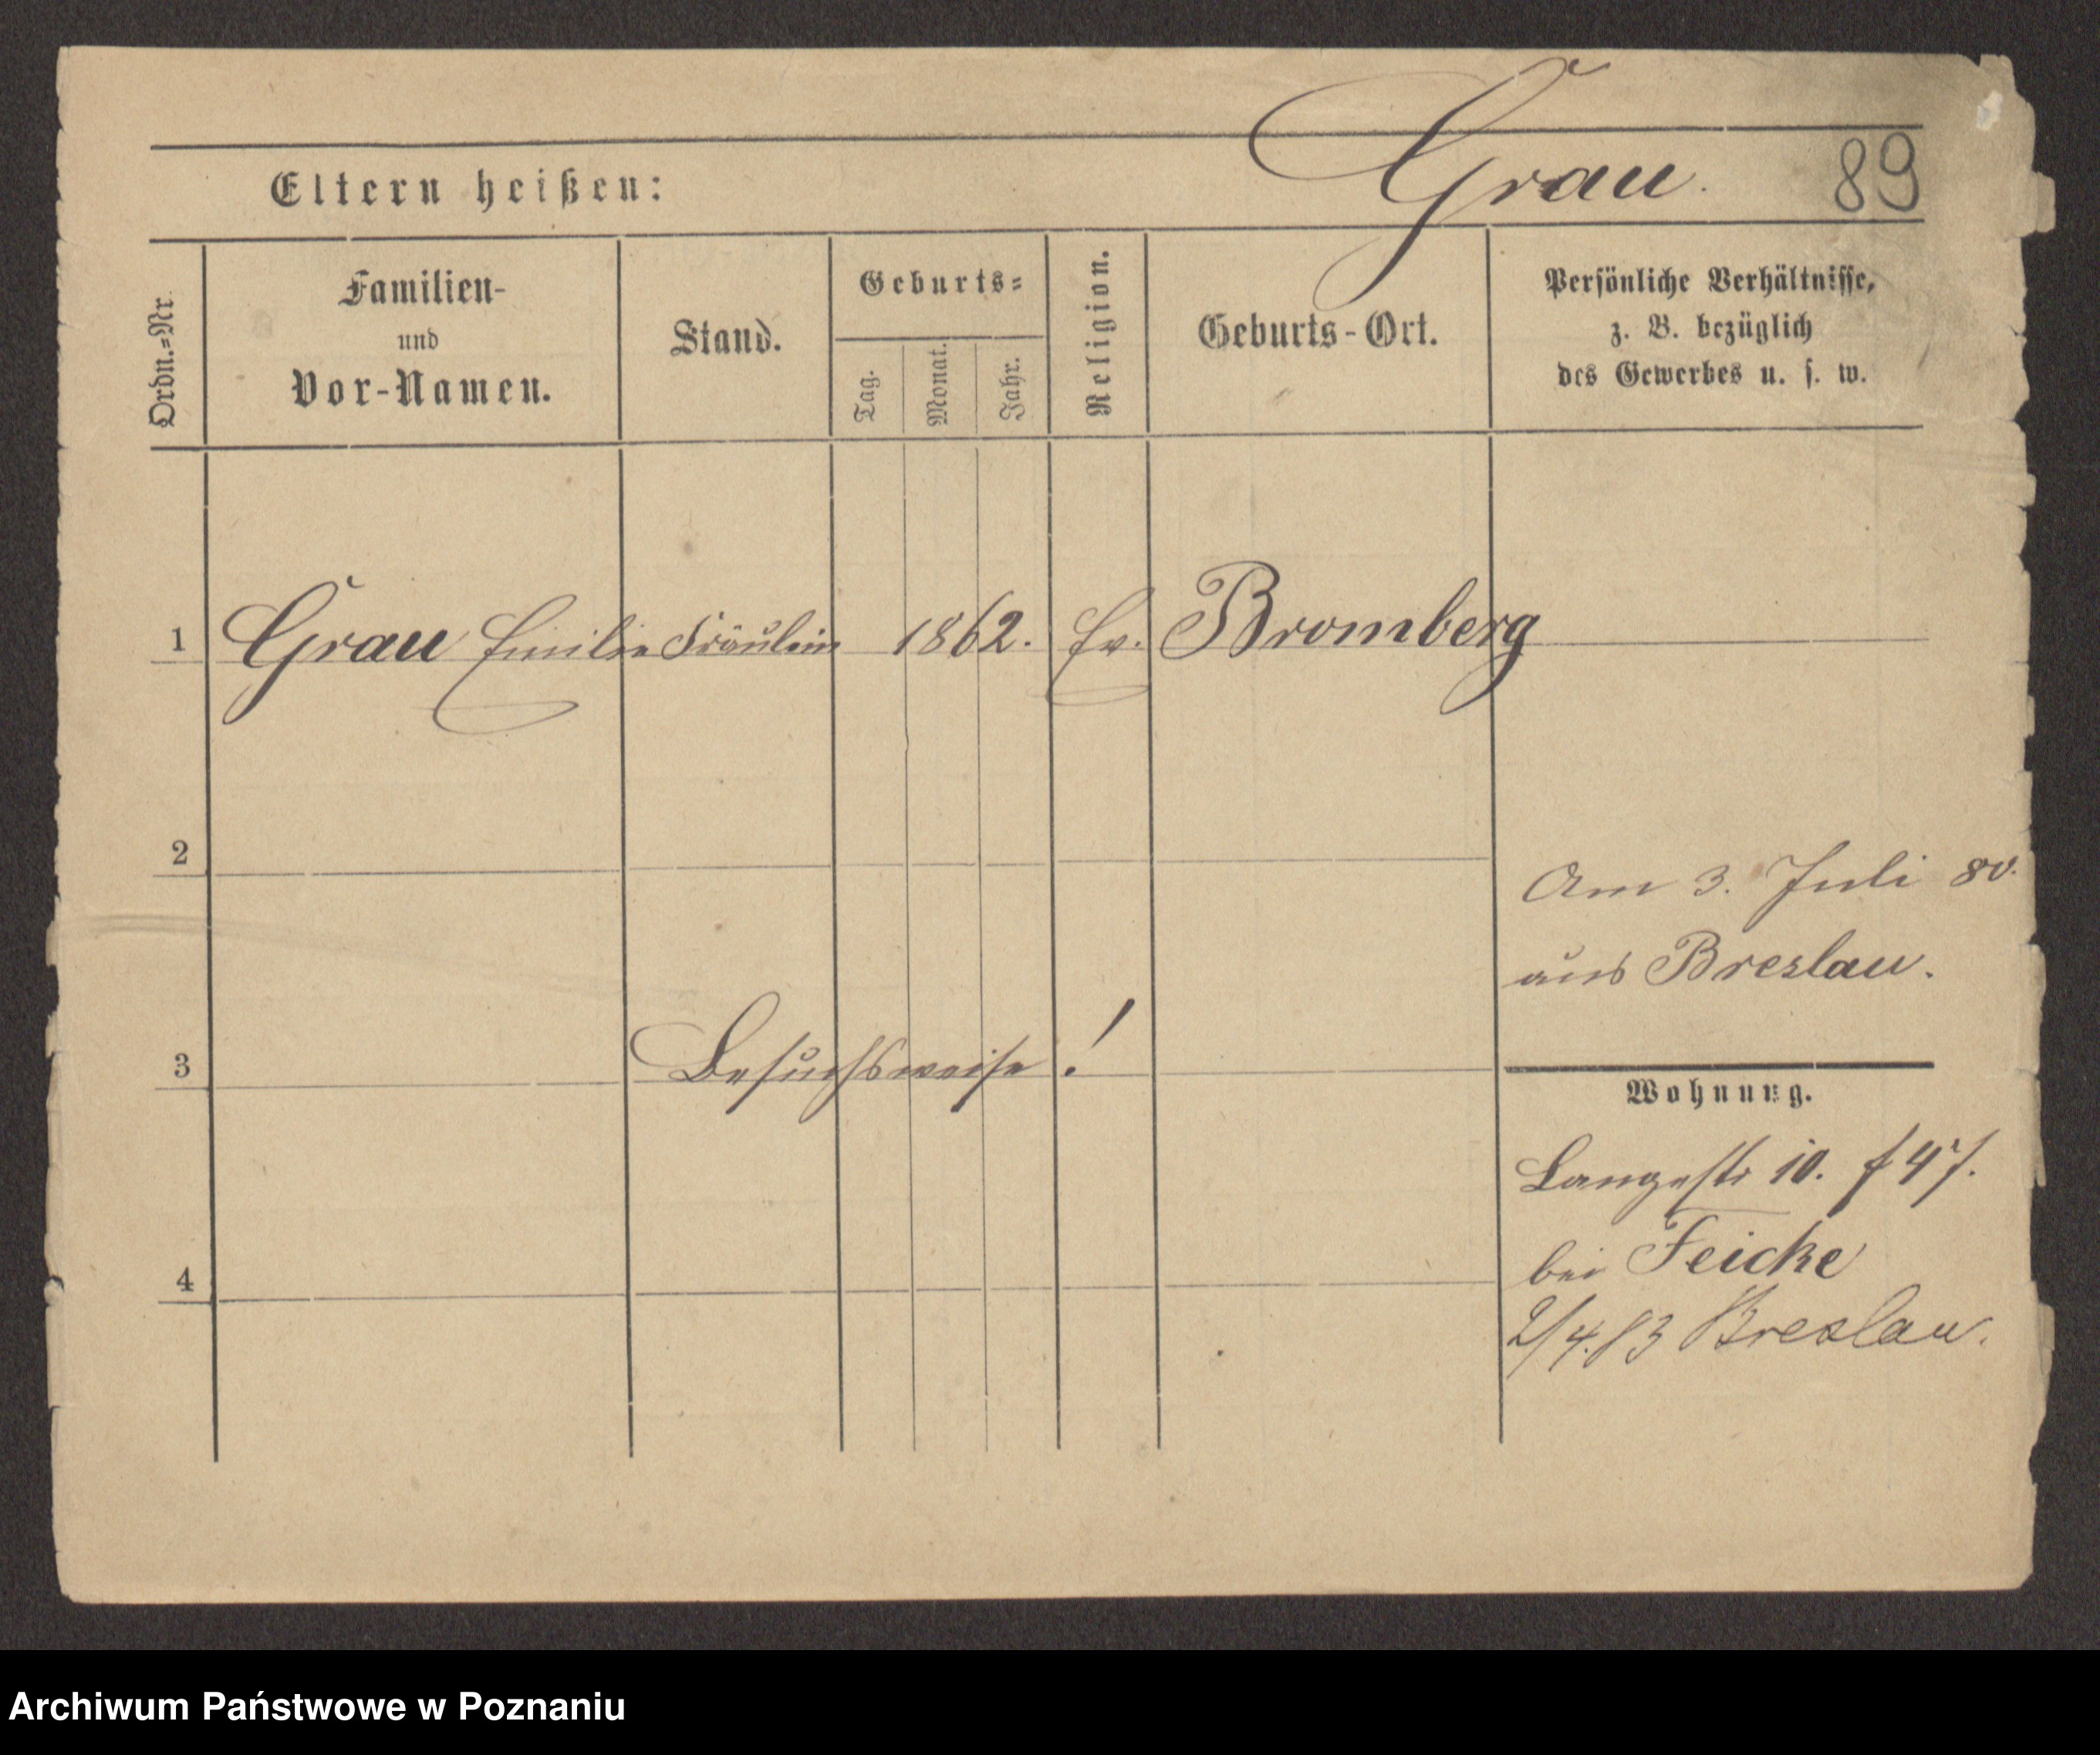 Grau.
89
Eltern heißen:
Ordn.=Nr.
Familien-
und
Vor-Namen.
Stand.
Geburts=
Tag.
Monat.
Jahr.
Religion.
Geburts-Ort.
Persönliche Verhältnisse,
z. B. bezüglich
des Gewerbes u. s. w.
1 Grau Emilie Fräulein 1862. Ev. Bromberg
2
Am 3. Juli 80.
aus Breslau.
3 Besuchsweise!
Wohnung.
Langestr 10. f 47.
bei Feicke
4
2/4.83 Breslau.
Archiwum Państwowe w Poznaniu